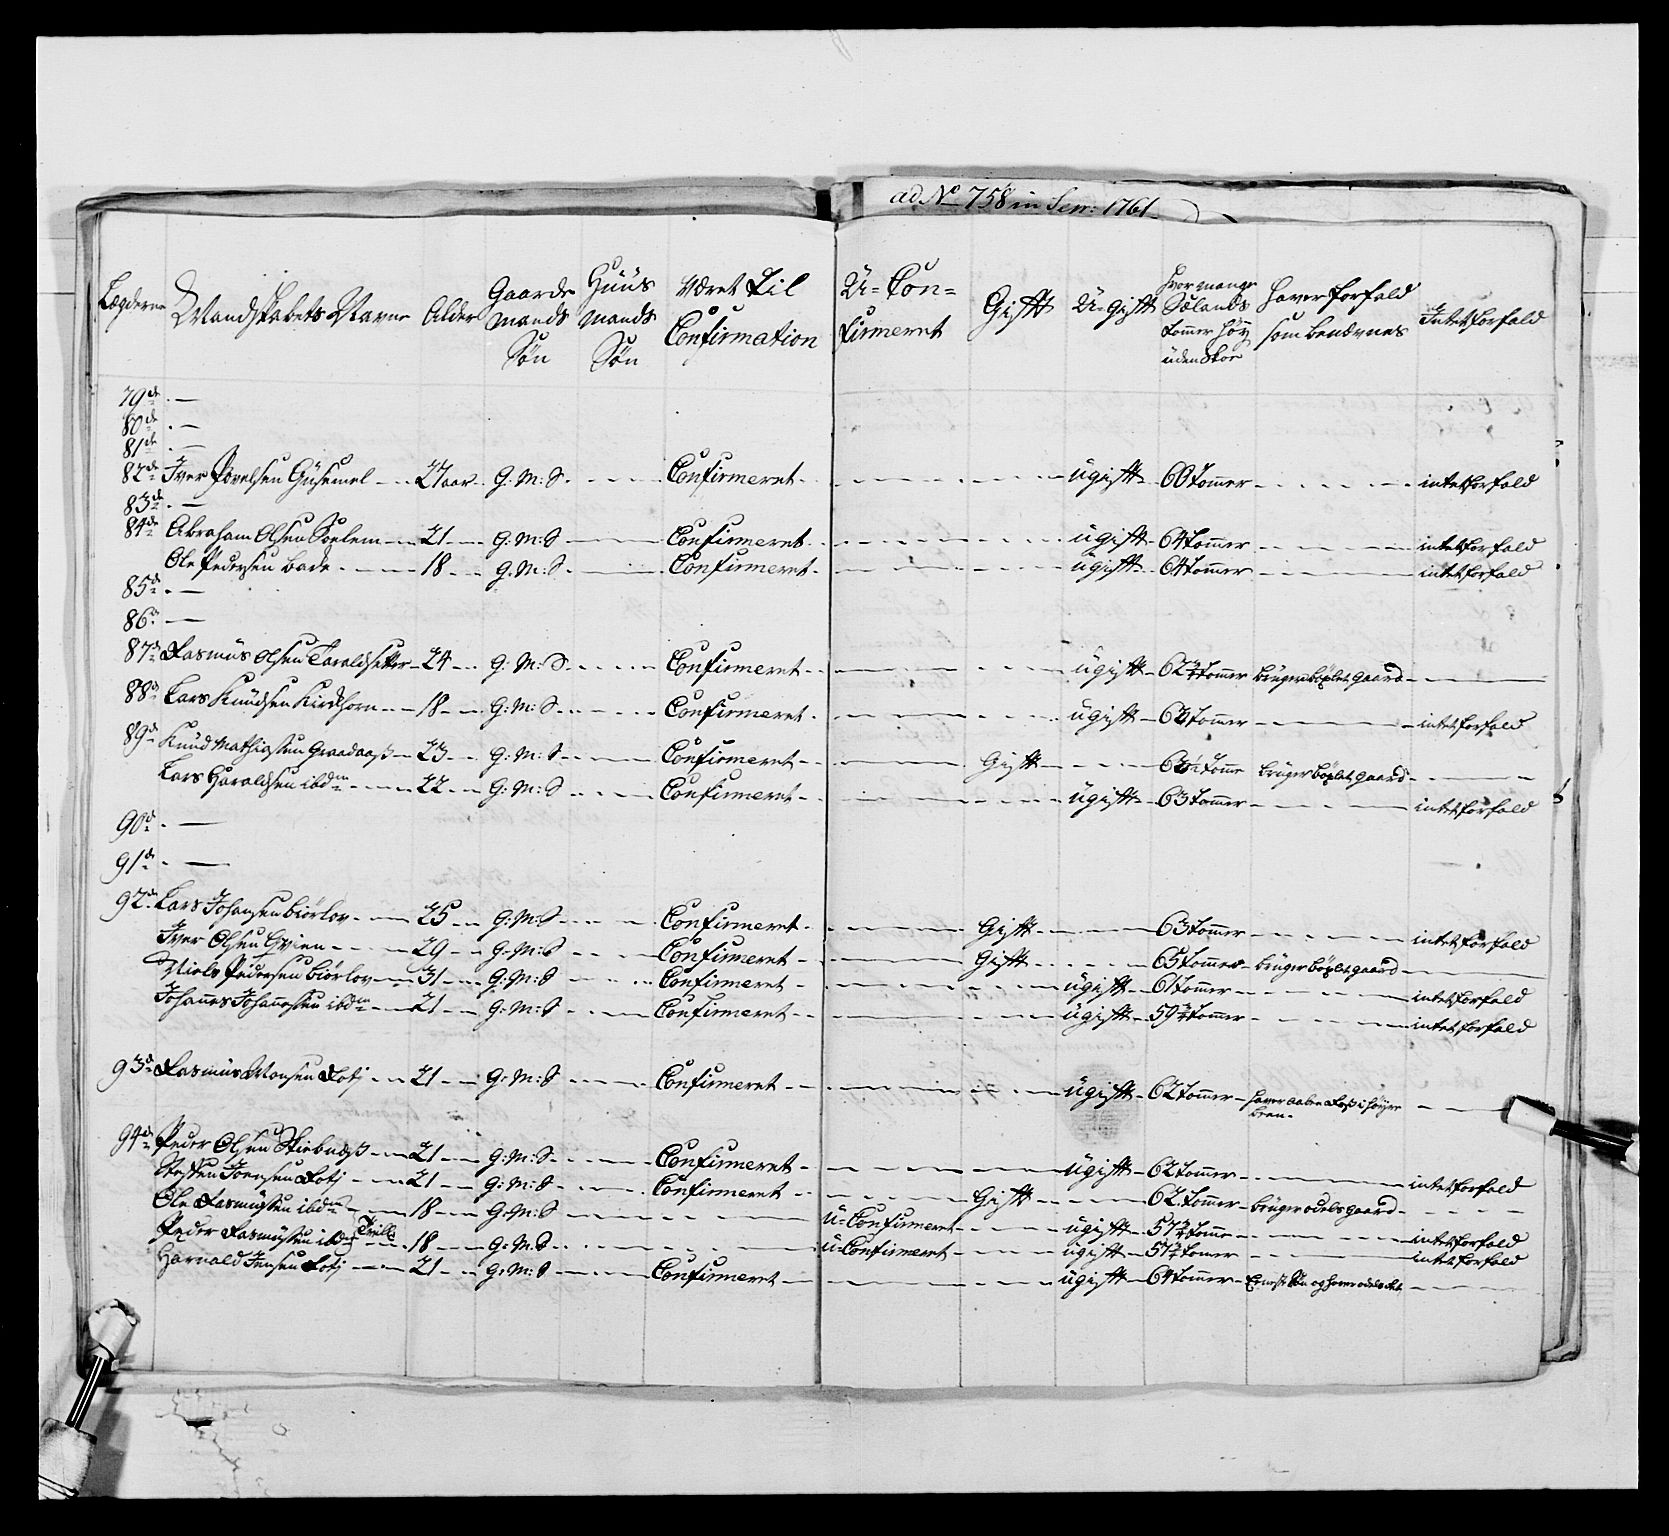 ad No 758 in Sess: 1761
Lægderne Mandskabets Navne Alder Gaards Mands Søn Huus Mands Søn Været Til Confirmation U-Confirmeret Gift U-Gift hvor mange Sælands Tommer høy uden Skoe haver forfald som benævnes Intet forfald
79de
80de
81de
82de Iver Povelsen 27 aar G: M: S Confirmeret ugift 60 Tommer intet forfald
83de
84de Abraham Olsen 21 G: M: S Confirmeret ugift 64 Tommer intet forfald
Ole Pedersen 18 G: M: S Confirmeret ugift 64 Tommer intet forfald
85de
86de
87de Rasmus Olsen 24 G: M: S Confirmeret ugift 62 Tommer bruger böxlet gaard
88de Lars Knudsen Kirchhorn 18 G: M: S Confirmeret ugift Tommer intet forfald
89de Knud Mathiassen 23 G: M: S Confirmeret Gift Tomme bruger böxlet gaard
Lars Haraldsen ibdm 22 G: M: S Confirmeret ugift 63 Tommer intet forfald
90de
91de
92de Lars Johansen Biørlov 25 G: M: S Confirmeret Gift 63 Tommer intet forfald
Iver Olsen 29 G: M: S Confirmeret Gift 65 Tommer bruger böxlet gaard
Niels Pedersen Biørlov 31 G: M: S Confirmeret ugift 61 Tommer intet forfald
Johannes Johannessen ibdm 21 G: M: S Confirmeret ugift 59 Tommer intet forfald
93de Rasmus Monsen 21 G: M: S Confirmeret ugift 62 Tommer haver i høyre
been
94de Peder Olsen 21 G: M: S Confirmeret ugift 62 Tommer intet forfald
Steffen 21 G: M: S Confirmeret Gift 62 Tommer bruger odels gaard
Ole Rasmussen ibdm 18 G: M: S U-Confirmeret ugift 57 Tomme intet forfald
Peder Rasmussen ibdm 18 G: M: S U-Confirmeret ugift 57 Tommer intet forfald
Harald Jensen 21 G: M: S Confirmeret ugift 64 Tommer